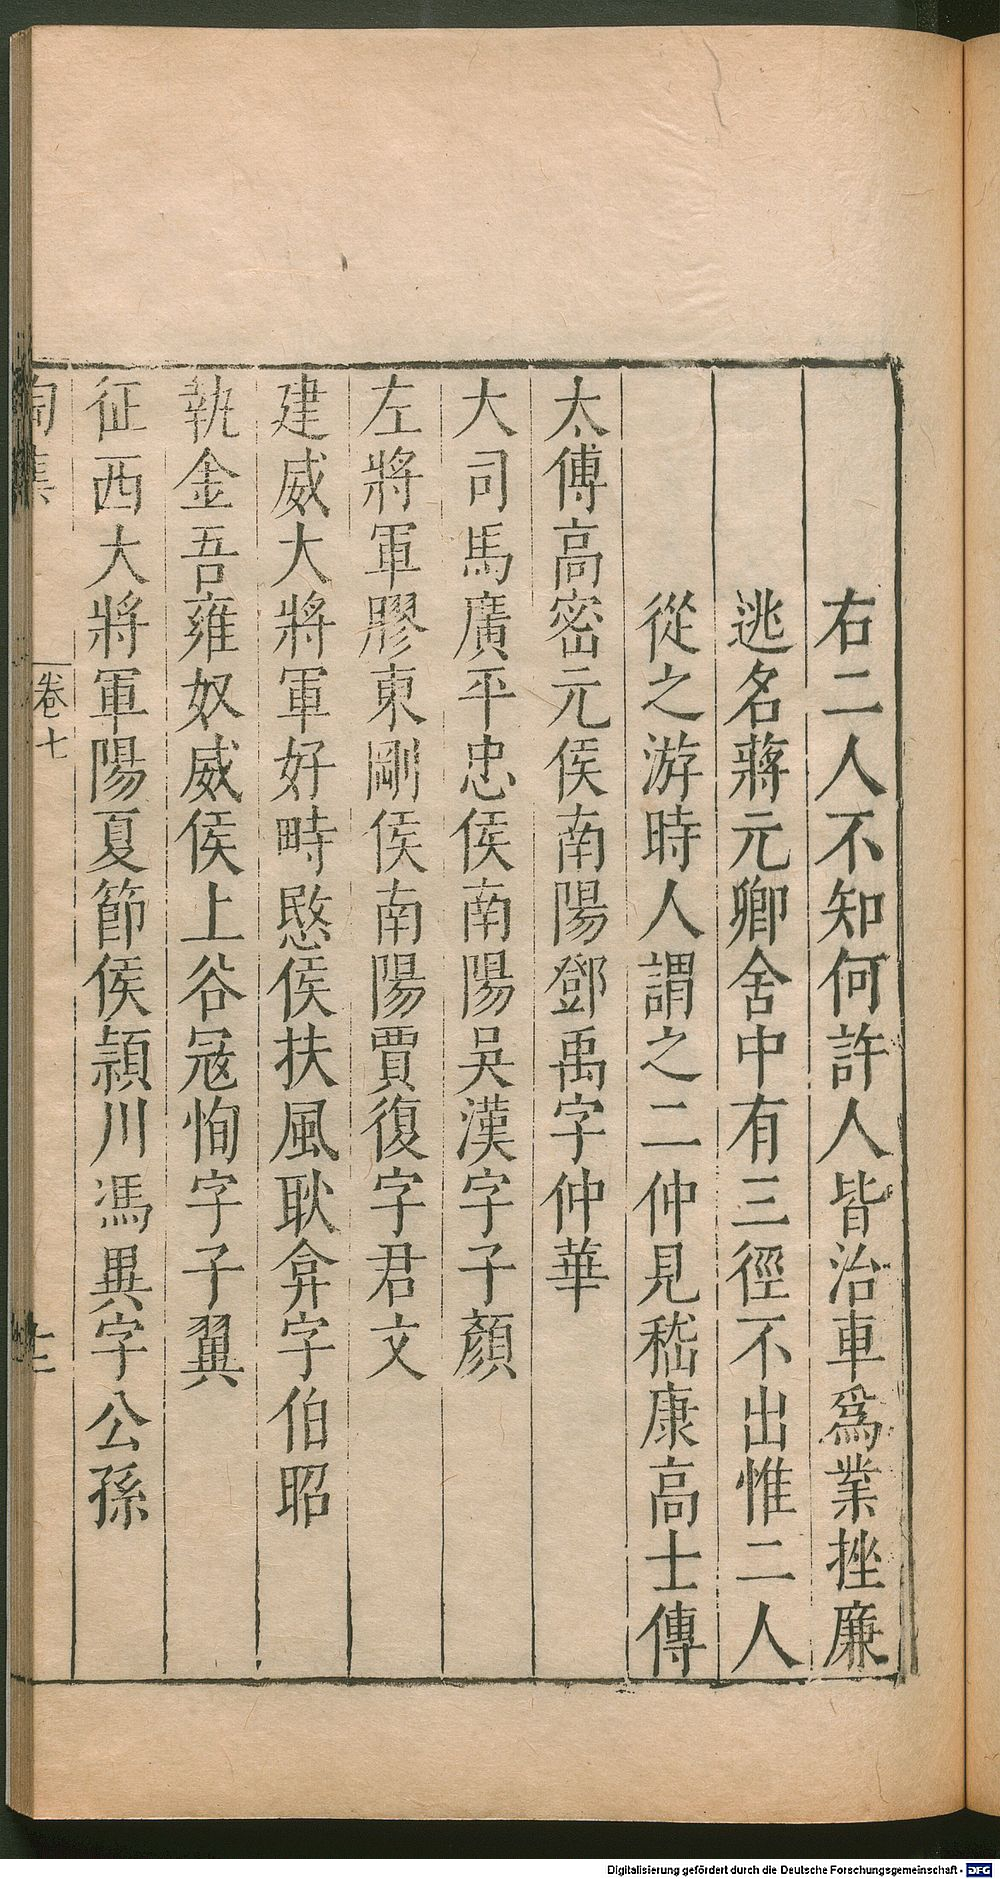 右二人不知何許人皆治車爲業挫廉
逃名蔣元卿舍中有三徑不出惟二人
從之游時人謂之二仲見嵇康高士傳
太傅高密元侯南陽鄧禹字仲華
大司馬廣平忠侯南陽吳漢字子顏
左將軍膠東剛侯南陽賈復字君文
建威大將軍好畤愍侯扶風耿弇字伯昭
執金吾雍奴威侯上谷冦恂字子翼
征西大將軍陽夏節侯潁川馮異字公孫
陶集
卷七
Digitalisierung gefördert durch die Deutsche Forschungsgemeinschaft - DFG